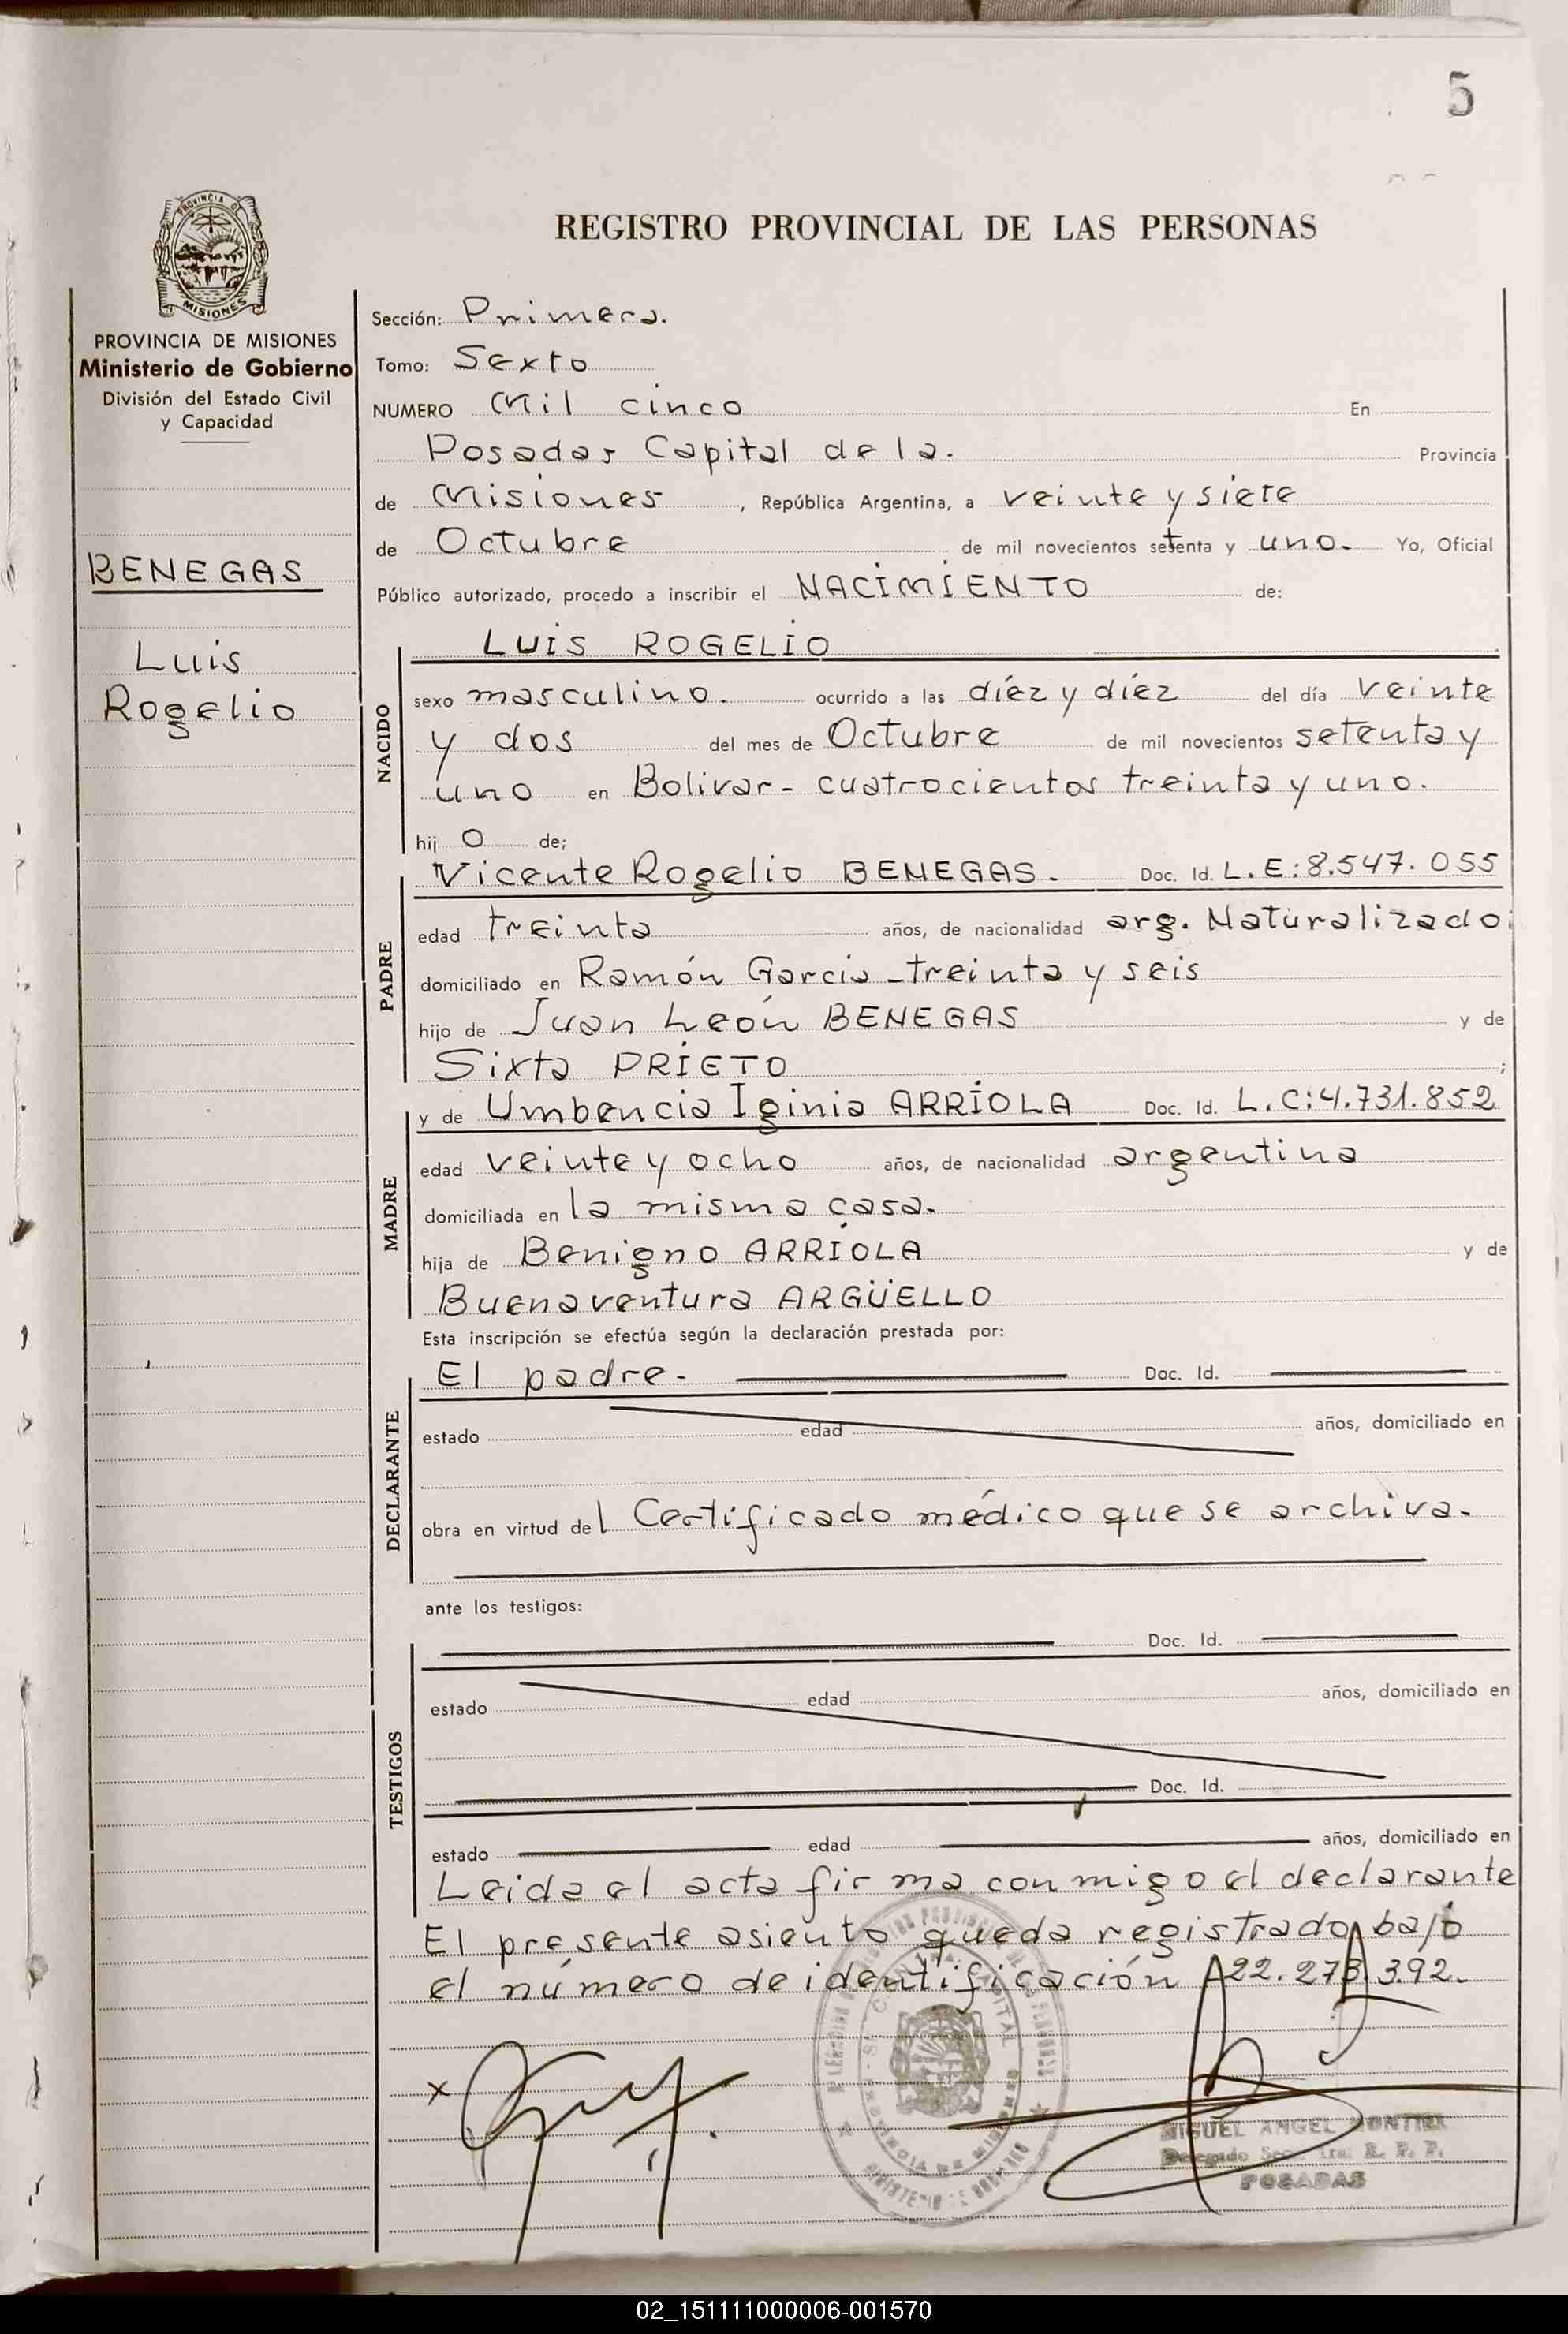 5
PROVINCIA DE
MISIONES
REGISTRO PROVINCIAL DE LAS PERSONAS
PROVINCIA DE MISIONES
Ministerio de Gobierno
División del Estado Civil
y Capacidad
BENEGAS
Luis
Rogelio
Sección: Primera.
Tomo: Sexto
NUMERO Mil cinco En
Posadas Capital de la. Provincia
de Misiones, República Argentina, a veinte y siete
de Octubre de mil novecientos setenta y uno. Yo, Oficial
Público autorizado, procedo a inscribir el NACIMIENTO de:
NACIDO
LUIS ROGELIO
sexo masculino. ocurrido a las díez y díez del día veinte
y dos del mes de Octubre de mil novecientos setenta y
uno en Bolivar - cuatrocientos treinta y uno.
hijo de;
PADRE
Vicente Rogelio BENEGAS. Doc. Id. L.E:8.547.055
edad treinta años, de nacionalidad arg. Naturalizado
domiciliado en Ramón Garcia - treinta y seis
hijo de Juan León BENEGAS y de
Sixta PRIETO ;
MADRE
y de Umbencia Iginia ARRIOLA Doc. Id. L.C:4.731.852
edad veinte y ocho años, de nacionalidad argentina
domiciliada en la misma casa.
hija de Benigno ARRIOLA y de
Buenaventura ARGÜELLO
Esta inscripción se efectúa según la declaración prestada por:
DECLARANTE
El padre. Doc. Id.
estado edad años, domiciliado en
obra en virtud del Certificado médico que se archiva.
ante los testigos:
TESTIGOS
Doc. Id.
estado edad años, domiciliado en
Doc. Id.
estado edad años, domiciliado en
Leida el acta firma conmigo el declarante
El presente asiento queda registrado bajo
el número de identificación 22.273.392.
x
MIGUEL ANGEL MONTIEL
Delegado
POSADAS
02_151111000006-001570